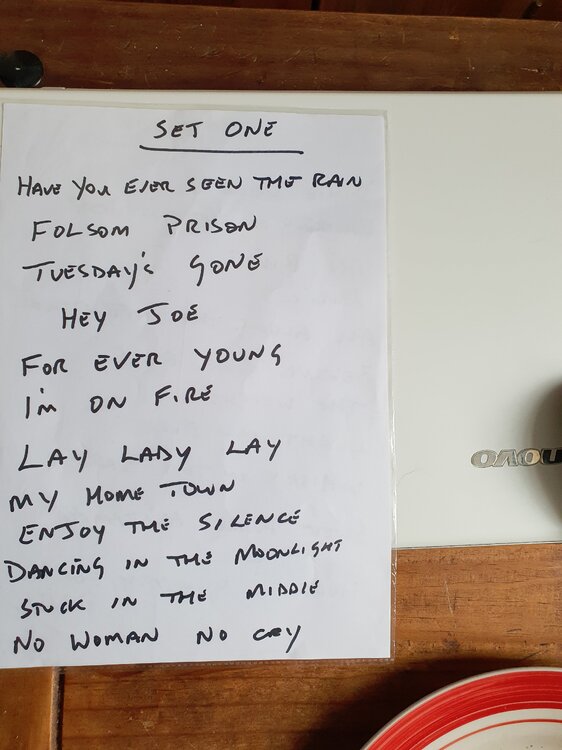 SET ONE
HAVE YOU EVER SEEN THE RAIN
FOLSOM PRISON
TUESDAY'S GONE
HEY JOE
FOR EVER YOUNG
I'm ON FIRE
LAY LADY LAY
MY HOME TOWN
ENJOY THE SILENCE
DANCING IN THE MOONLIGHT
STUCK IN THE MIDDLE
NO WOMAN NO CRY
lenovo